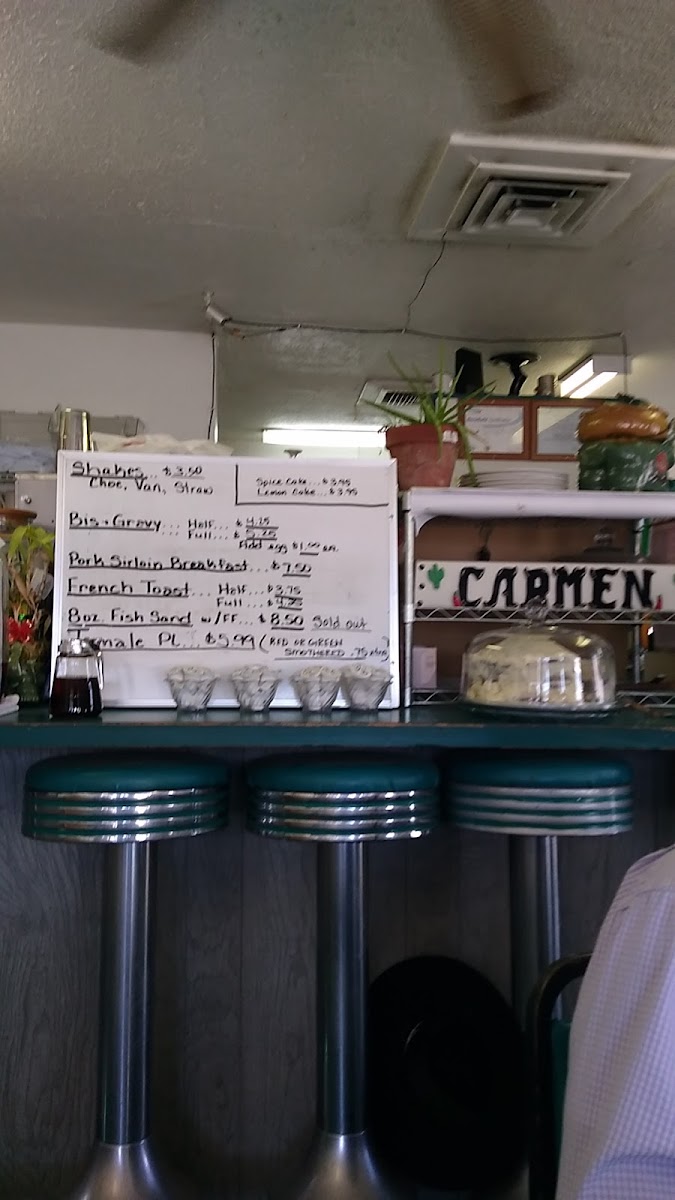 Shakes... $3.50
Choc, Van, Straw
Spice Cake... $3.95
Lemon Cake... $3.95
Bis + Gravy... Half... $4.25
Full... $5.25
Add egg $1.00 ea.
Pork Sirloin Breakfast... $7.50
French Toast... Half... $3.75
Full... $4.25
8oz. Fish Sand w/FF... $8.50 Sold out
Tamale PL... $5.99 (RED OR GREEN
SMOTHERED .75 xtra)
CARMEN